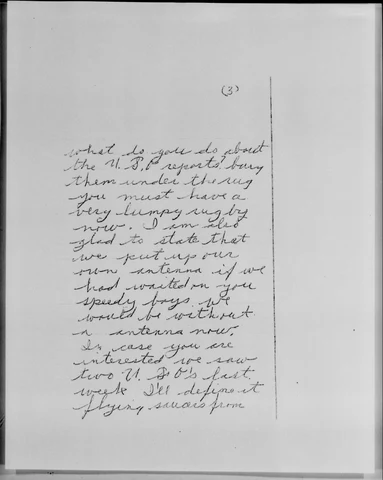 (3)
what do you do about
the U. F. O reports, bury
them under the rug
you must have a
very lumpy rug by
now. I am also
glad to state that
we put up our
own antenna if we
had waited on you
speedy boys we
would be without
a antenna now.
In case you are
interested we saw
two U. F O's last
week I'll define it
flying saucers from